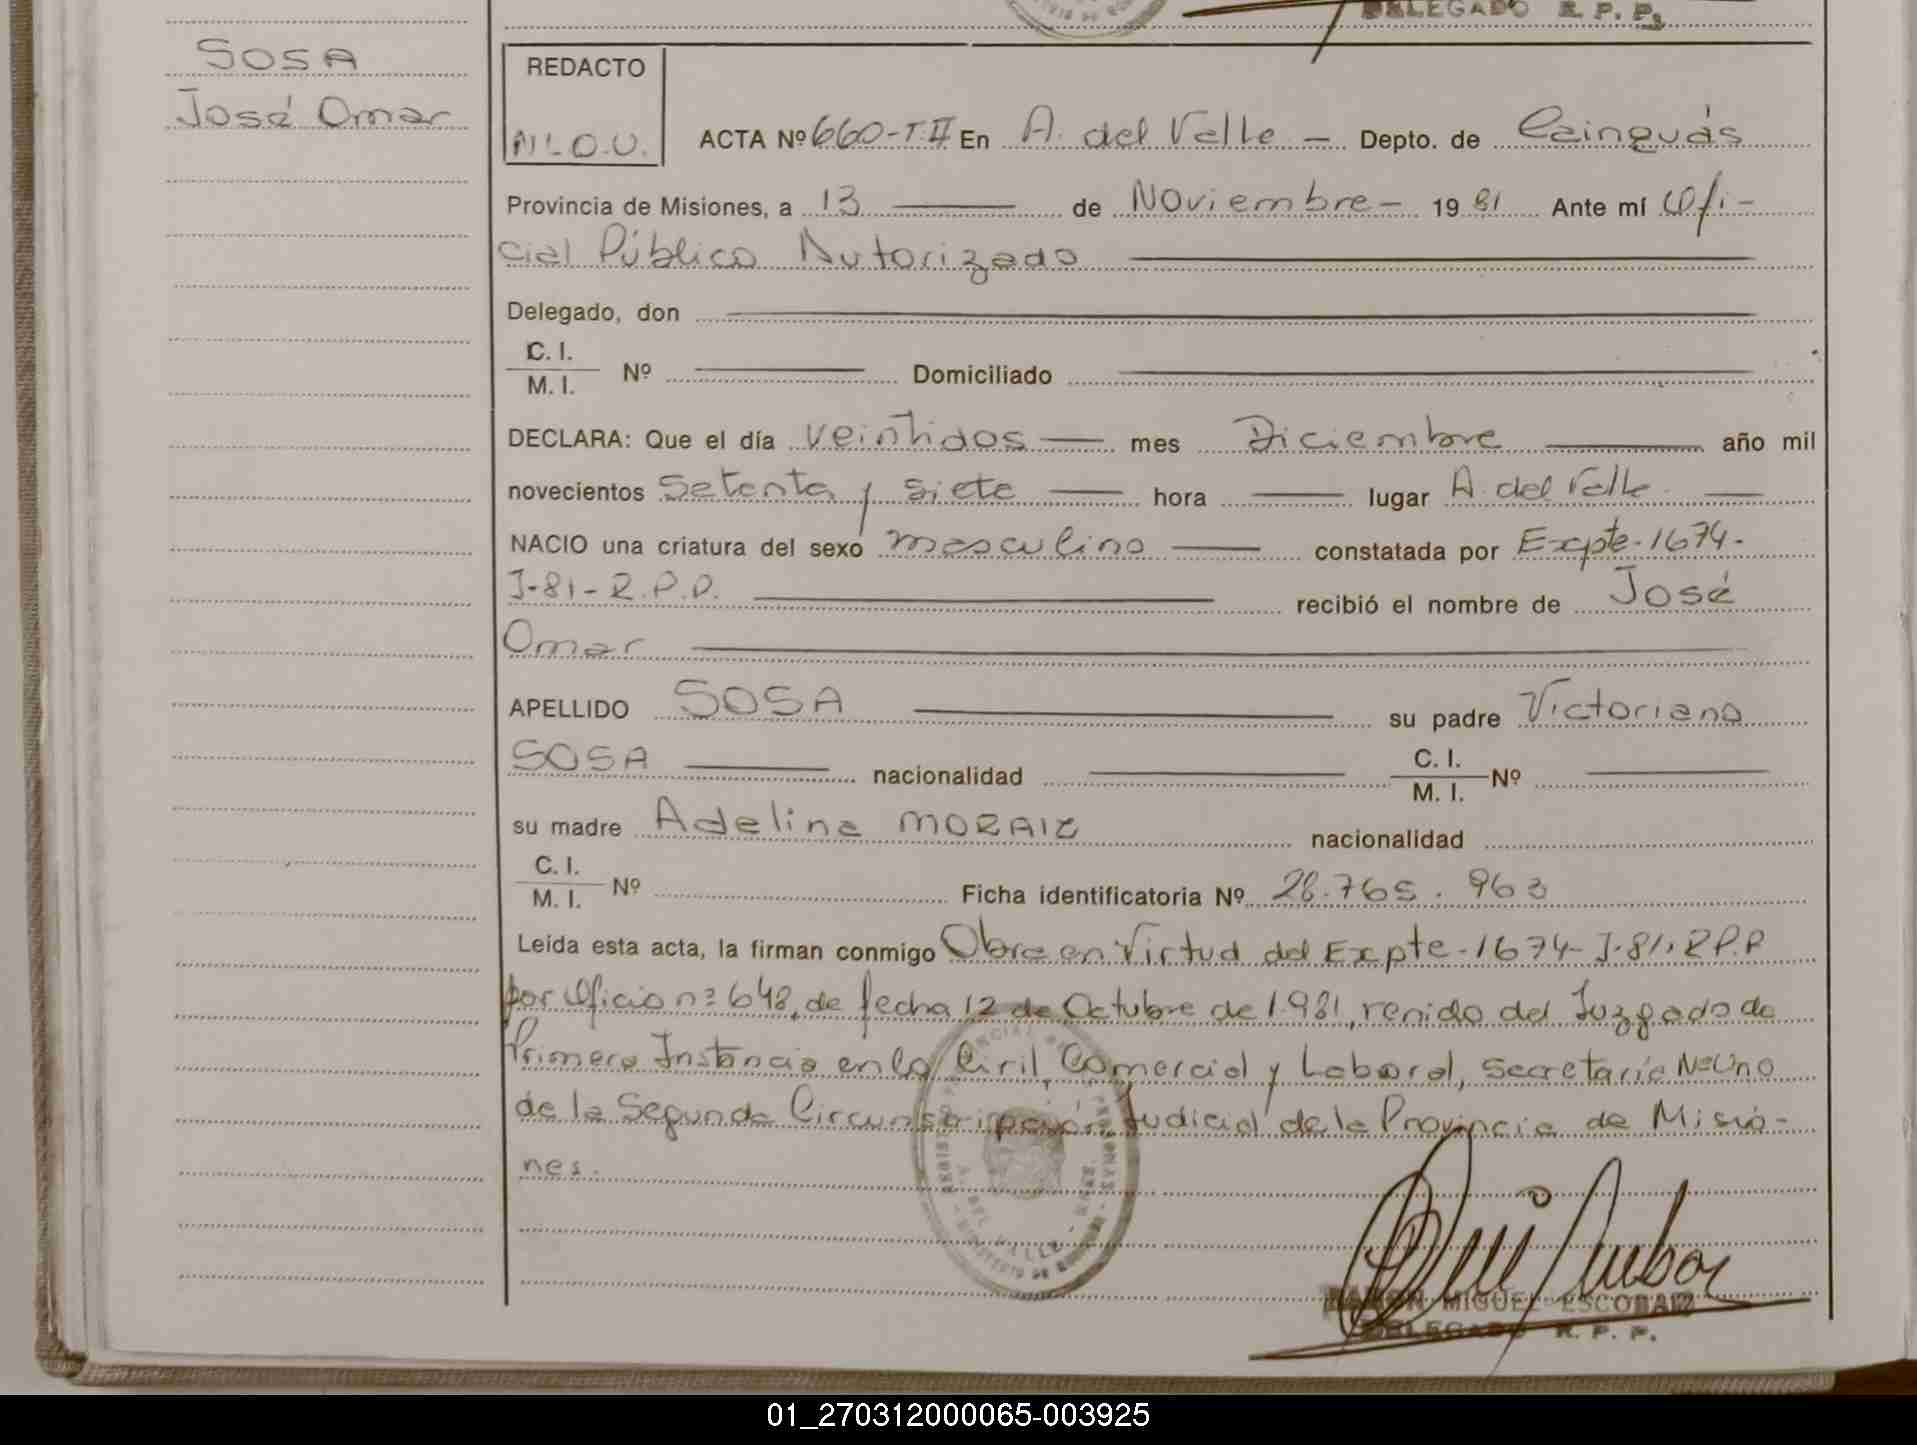 DELEGADO R. P. P.
SOSA
José Omar
REDACTO
M.O.V.
ACTA Nº 660-T.II En A. del Valle — Depto. de Cainguás
Provincia de Misiones, a 13 de Noviembre - 19 81 Ante mí Ofi-
cial Público Autorizado
Delegado, don
C. I.
M. I. Nº Domiciliado
DECLARA: Que el día Veintidos mes Diciembre año mil
novecientos Setenta y siete hora lugar A. del Valle
NACIO una criatura del sexo masculino constatada por Expte-1674-
J-81-R.P.P. recibió el nombre de José
Omar
APELLIDO SOSA su padre Victoriano
SOSA nacionalidad C. I. M. I. Nº
su madre Adelina MORAIZ nacionalidad
C. I.
M. I. Nº Ficha identificatoria Nº 28.765.963
Leída esta acta, la firman conmigo Obra en Virtud del Expte-1674-J-81-R.P.P
por Oficio nº 648, de fecha 12 de Octubre de 1.981, venido del Juzgado de
Primera Instancia en lo Civil, Comercial y Laboral, Secretaría Nº Uno
de la Segunda Circunscripción Judicial de la Provincia de Misio-
nes.
A. DEL VALLE
RAMON MIGUEL ESCOBAR
DELEGADO R. P. P.
01_270312000065-003925